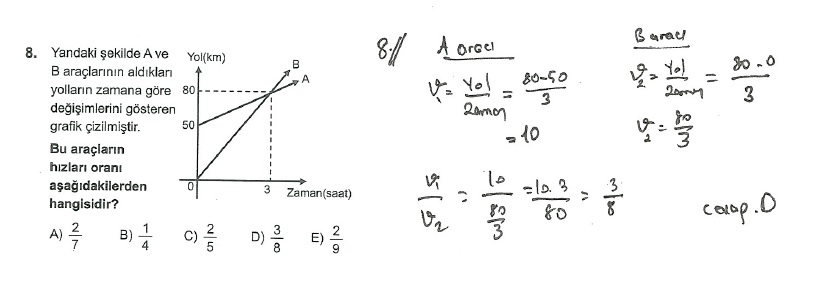 8. Yandaki şekilde A ve
B araçlarının aldıkları
yolların zamana göre
değişimlerini gösteren
grafik çizilmiştir.
Bu araçların
hızları oranı
aşağıdakilerden
hangisidir?
Yol(km)
B
A
80
50
0
3
Zaman(saat)
A) 2/7 B) 1/4 C) 2/5 D) 3/8 E) 2/9
8.//
A aracı
V₁ = Yol/Zaman = 80-50/3
= 10
B aracı
V₂ = Yol/Zaman = 80-0/3
V₂ = 80/3
V₁/V₂ = 10/(80/3) = 10.3/80 = 3/8
cevap.D